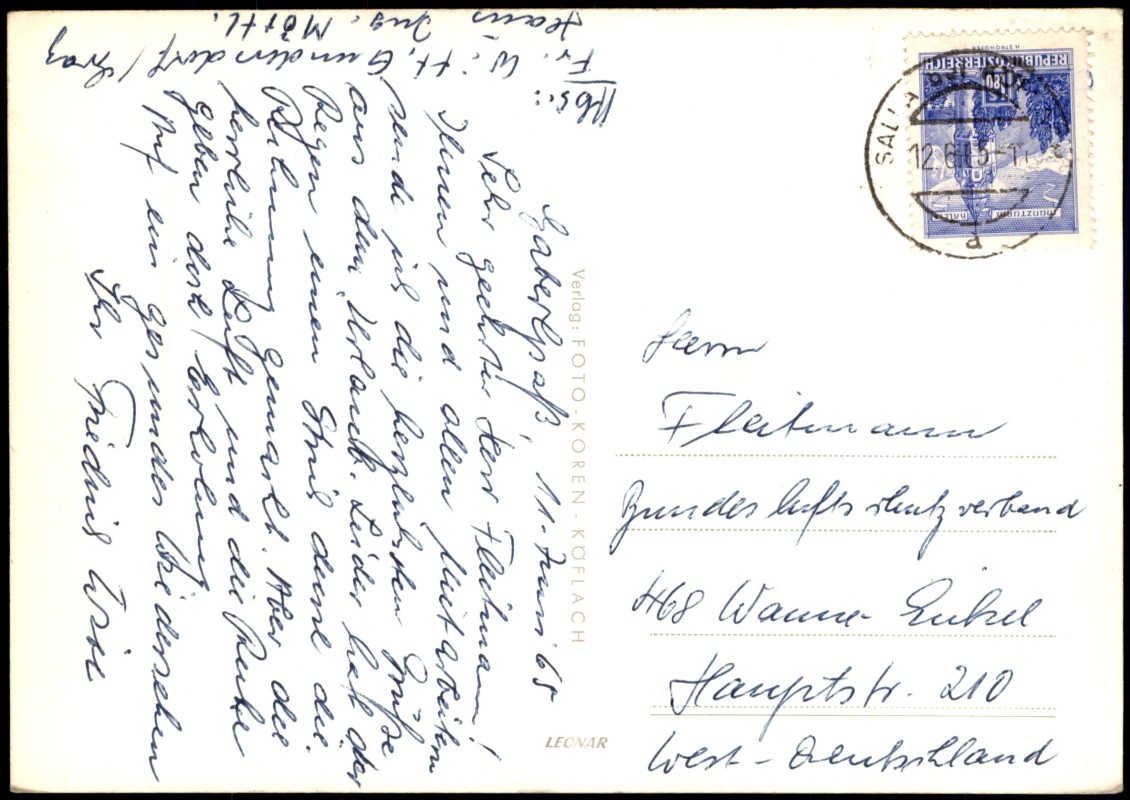 Abs.:
Fr. Witt, Gundendorf / Graz
Haus Ing. Mörtl.
Gaberlpaß 11. Juni 65
Sehr geehrter Herr Fleitmann!
Ihnen und allen Mitarbeitern
sende ich die herzlichsten Grüße
aus dem Urlaub. Leider hat der
Regen einen Strich durch die
Rechnung gemacht. Aber die
herrliche Luft und die Ruhe
geben doch Erholung
Auf ein gesundes Wiedersehen
Ihr Friedrich Witt
Verlag: FOTO-KOREN-KÖFLACH
LEONAR
REPUBLIK ÖSTERREICH
H. STROHOFER
MÜNZTURM
HALL
SALLA BEI
12.6.65-11
Herrn
Fleitmann
Bundesluftschutzverband
468 Wanne-Eickel
Hauptstr. 210
West-Deutschland